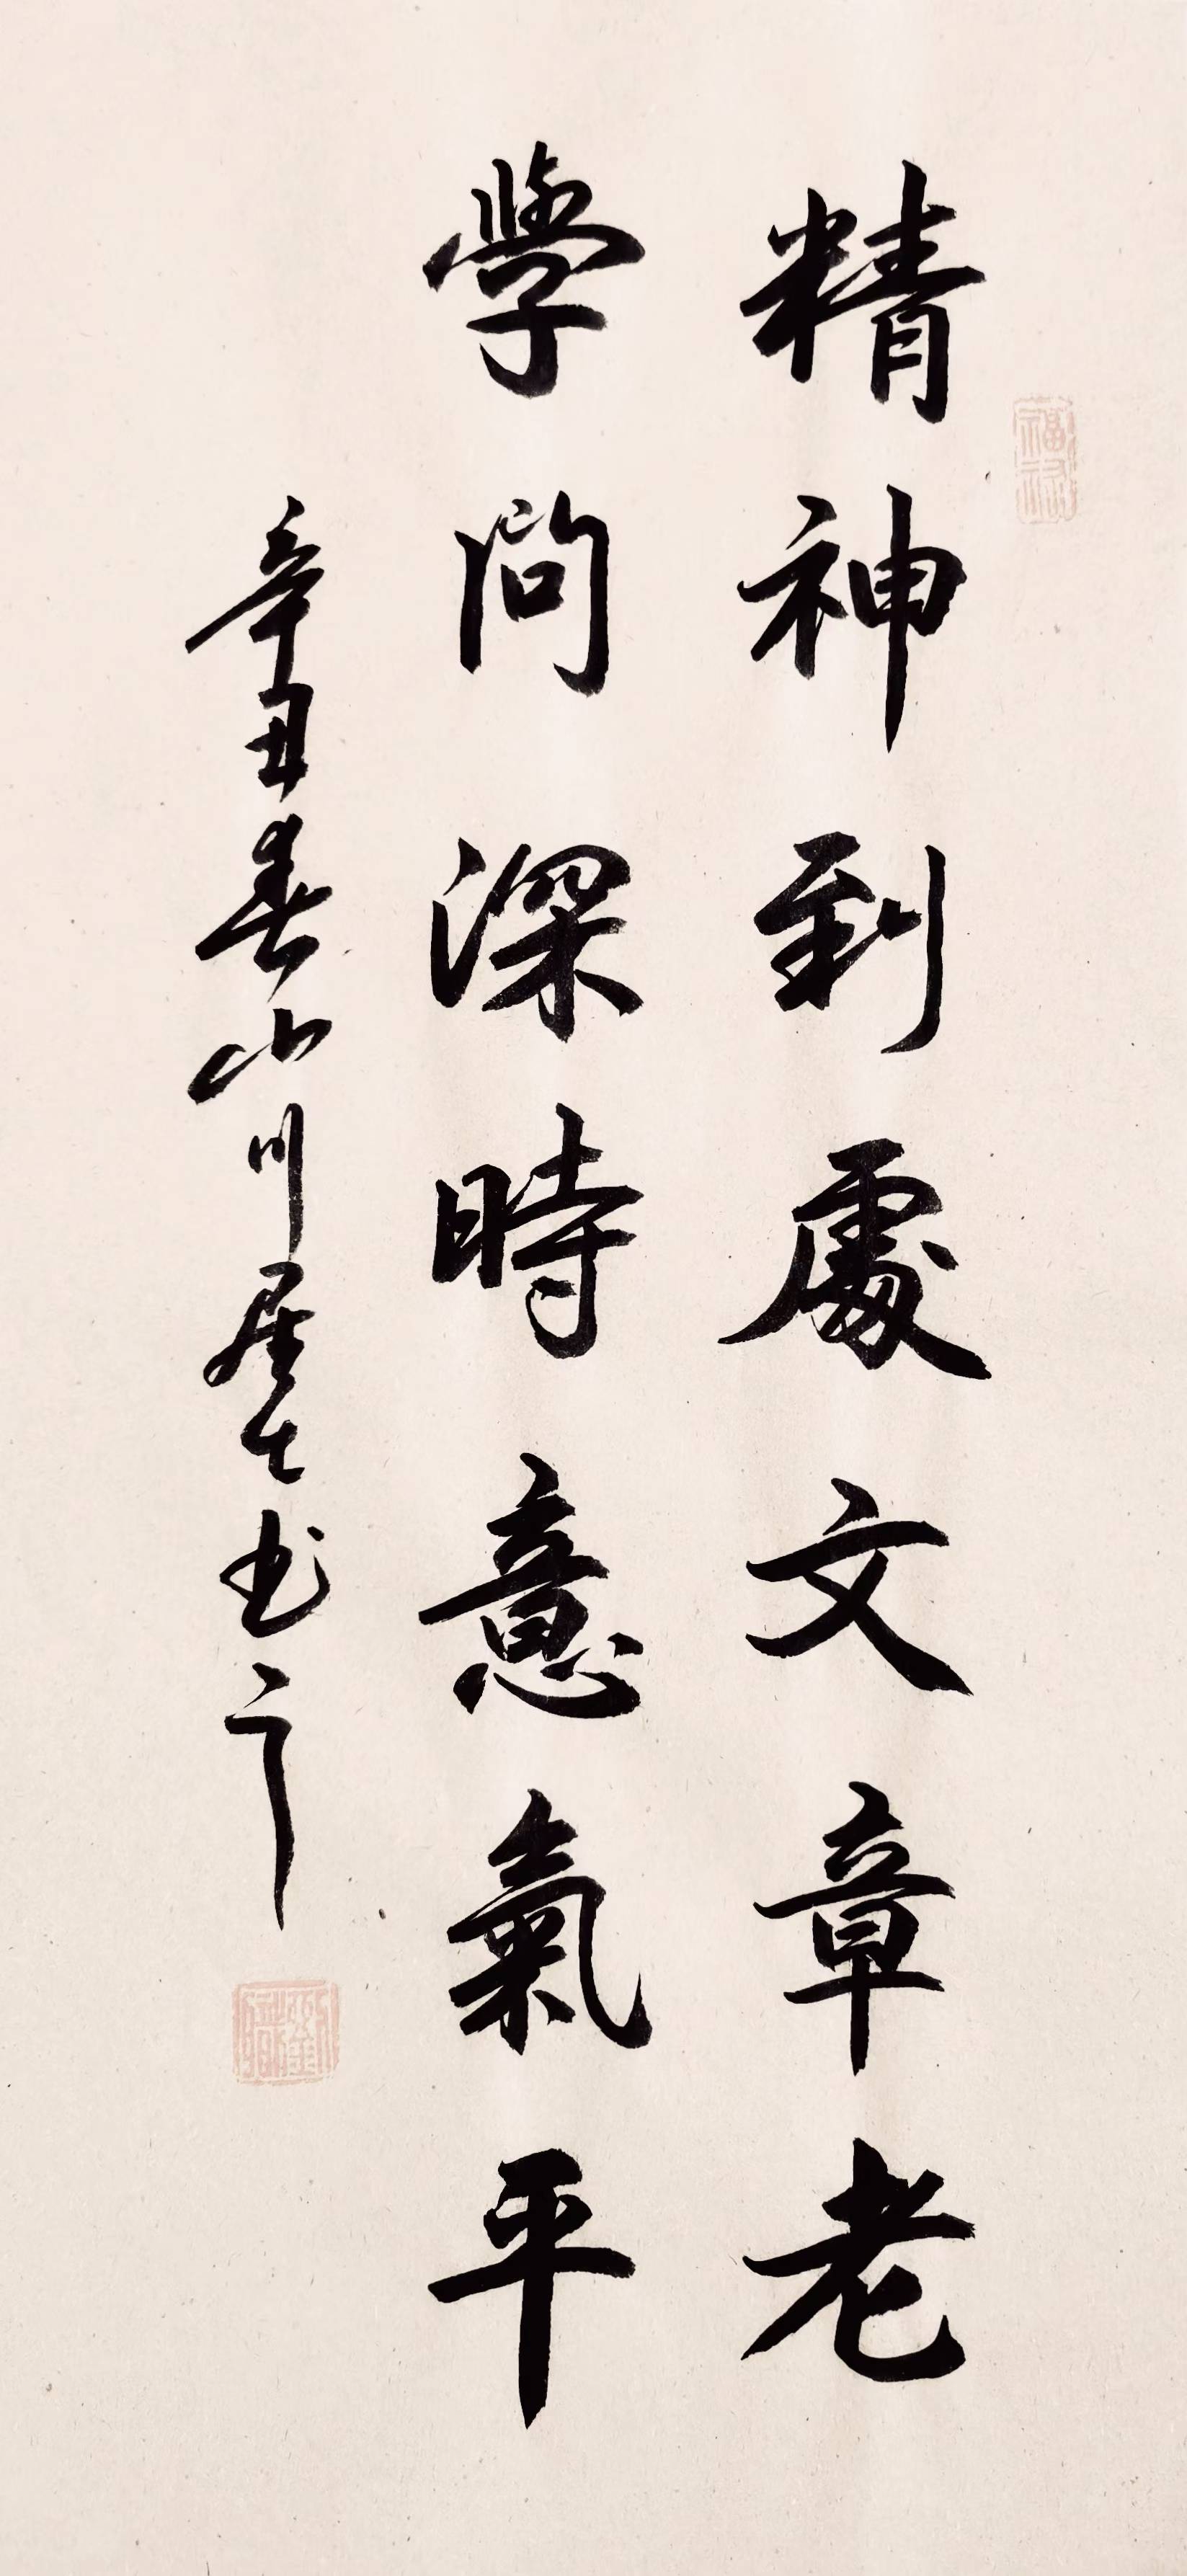 精神到處文章老
學問深時意氣平
辛丑春山川居士书之
福祿